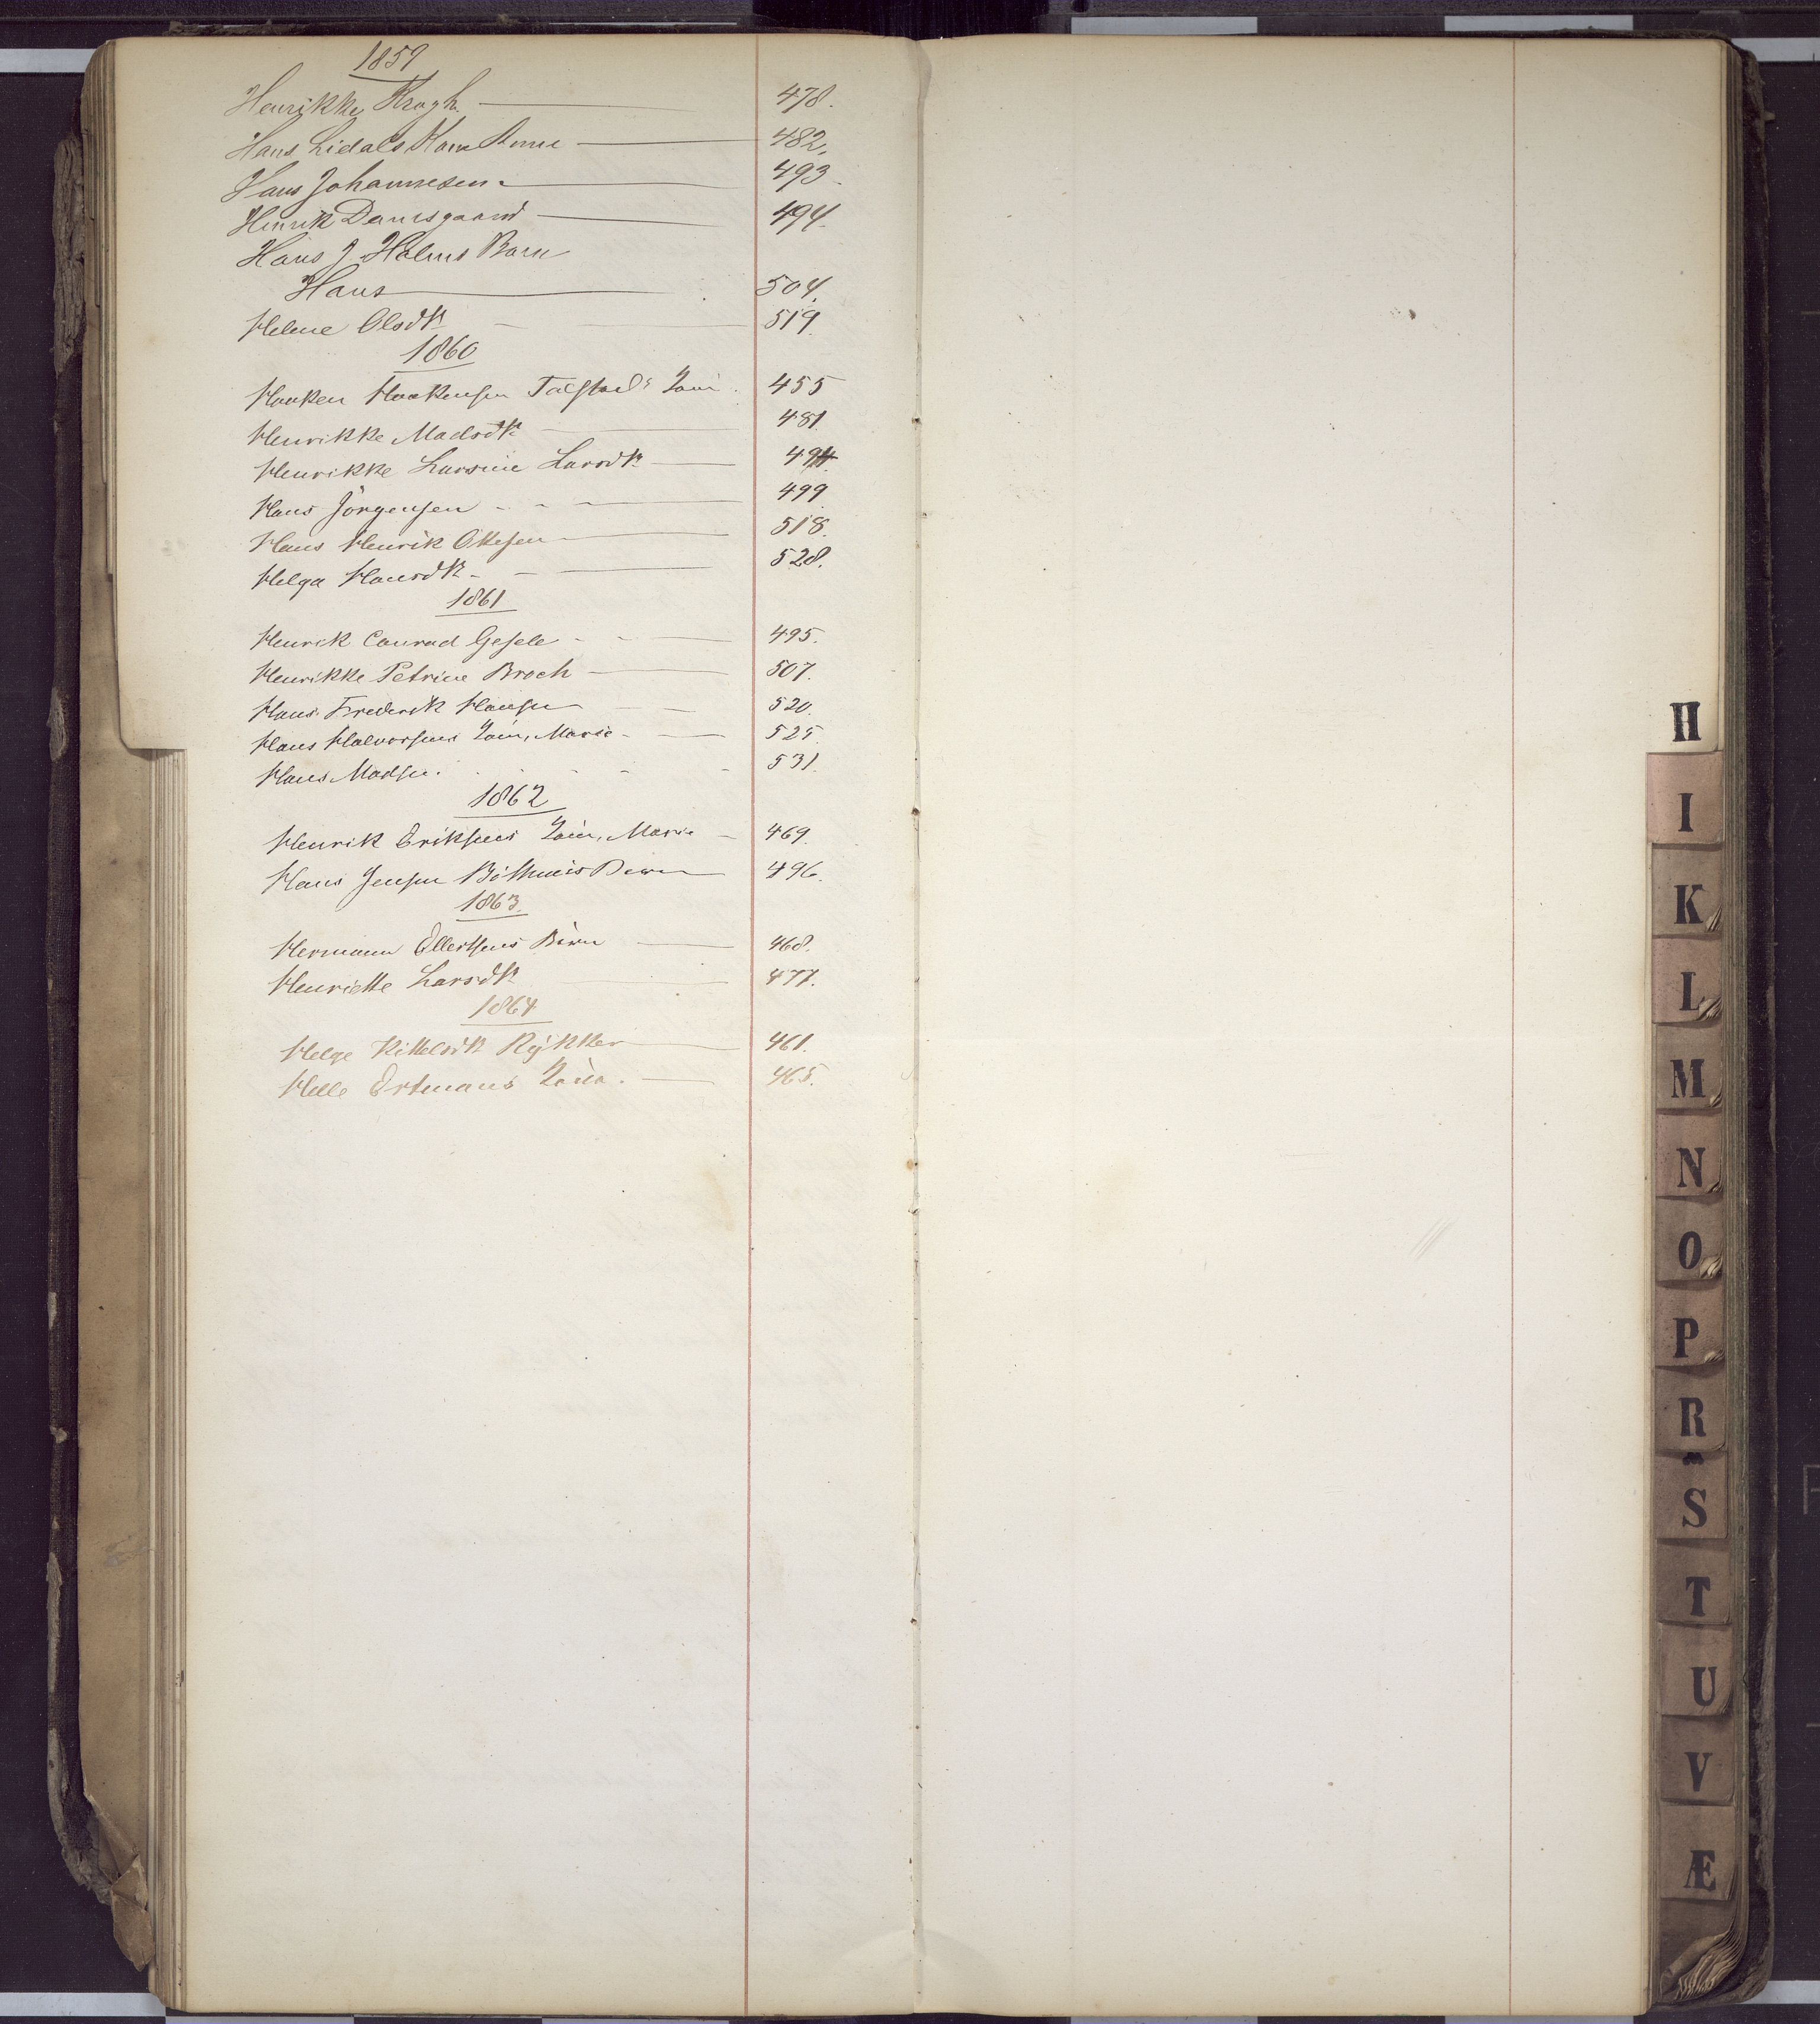 1859
Henrikke Krogh. 478.
Hans Lidals Kone Anne 482.
Hans Johannesen 493.
Henrik Damsgaard 494.
Hans J. Holms Barn
Hans 504.
Helene Olsdtr 519.
1860
Haaken Haakensen 455
Henrikke Madsdtr 481
Henrikke Larsine Larsdtr 494.
Hans Jörgensen 499
Hans Henrik Ottesen 518.
Helga Hansdtr 528.
1861
Henrik Conrad Gesele 495.
Henrikke Petrine Broch 507.
Hans Frederik Hansen 520.
Hans Halvorsens Marie 525.
Hans Madsen. 531.
1862
Henrik Eriksens Marie 469.
Hans Jensen 496.
1863.
Hermann Ellertsens Börn 468.
Henriette Larsdtr 477.
1864
Helge Kittelsdtr Rykker 461.
Helle Ertmans 465.
H
I
K
L
M
N
O
P
R
S
T
U
V
Æ